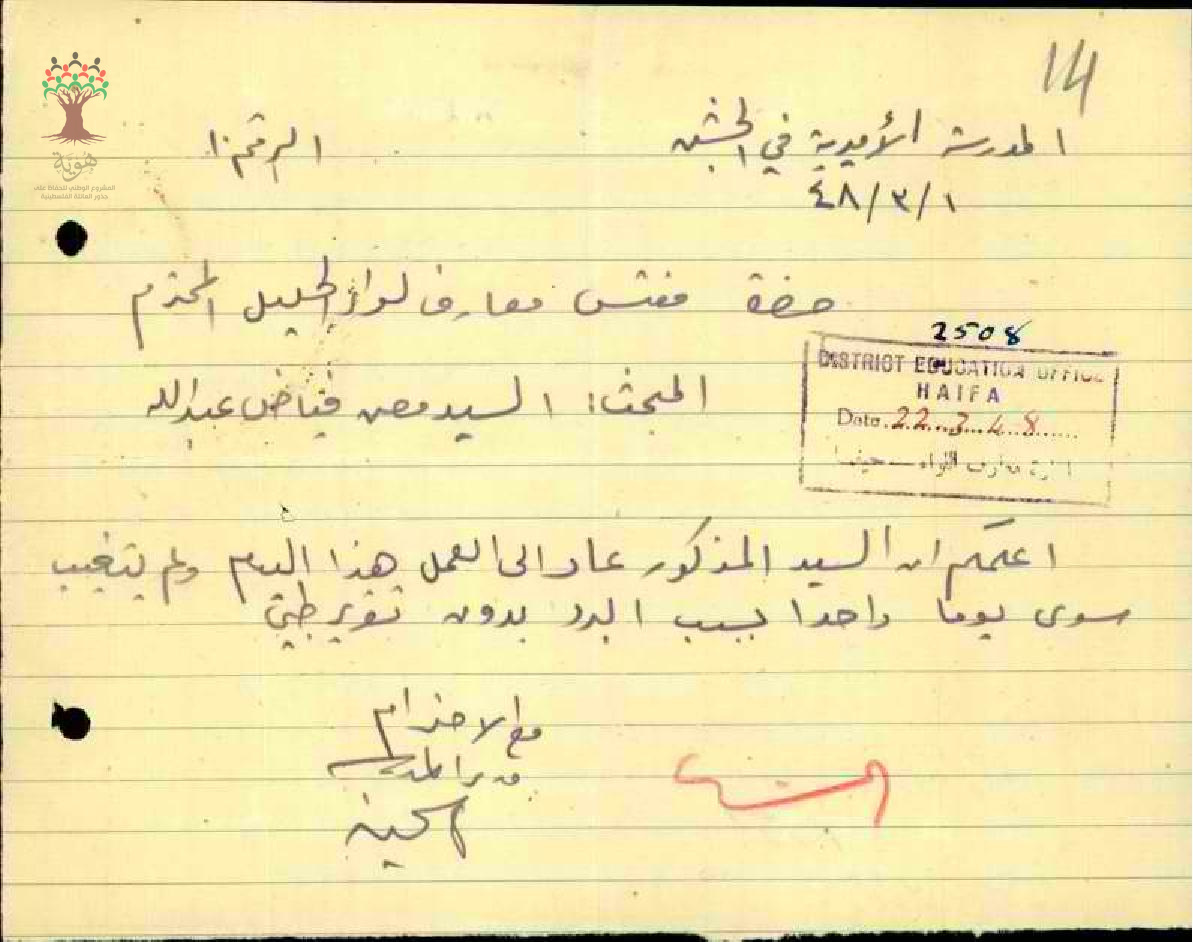 14
المدرسة الأميرية في الجش
الرقم:
٤٨/٣/١
حضرة مفتش معارف لواء الجليل المحترم
2508
DISTRICT EDUCATION OFFICE
HAIFA
Date 22.3.48
ادارة معارف اللواء — حيفا
المبحث: السيد فياض عبدالله
اعلمكم ان السيد المذكور عاد الى العمل هذا اليوم ولم يتغيب
سوى يوما واحدا بسبب البرد بدون تقرير طبي
مع الاحترام
مدير المدرسة
هوية
المشروع الوطني للحفاظ على
جذور العائلة الفلسطينية